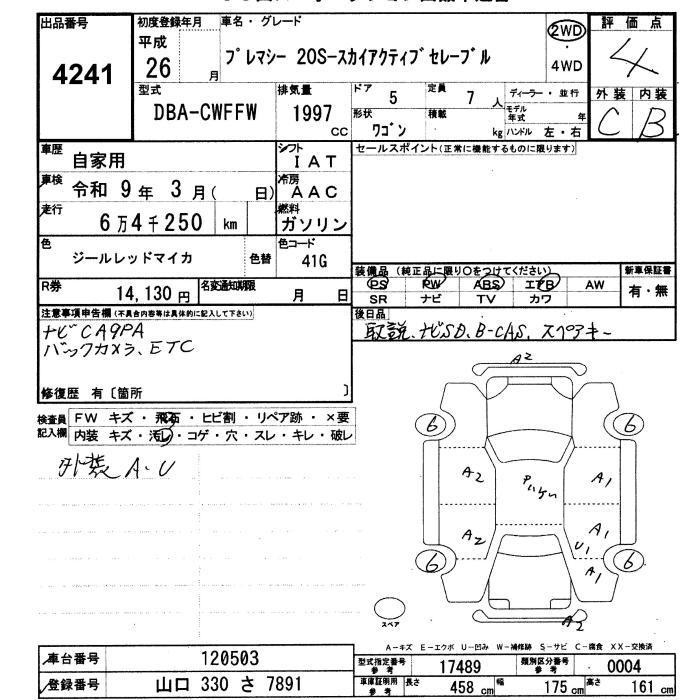 出品番号
4241
初度登録年月
平成
26 月
車名・グレード
プレマシー 20S-スカイアクティブセレーブル
2WD
4WD
評価点
4
外装 内装
C B
型式
DBA-CWFFW
排気量
1997
CC
ドア
5
定員
7 人
形状
ワゴン
積載
kg
ディーラー・並行
モデル年式 年
ハンドル 左・右
車歴
自家用
車検
令和 9 年 3 月( 日)
走行
6 万 4 千 250 km
シフト
I A T
冷房
A A C
燃料
ガソリン
色
ジールレッドマイカ
色替
色コード
41G
R券
14,130 円
名変通知期限
月 日
セールスポイント(正常に機能するものに限ります)
装備品 (純正品に限り○をつけてください)
PS PW ABS エアB AW
SR ナビ TV カワ
新車保証書
有・無
後日品
取説、ナビSD、B-CAS、スペアキー
注意事項申告欄(不具合内容は具体的に記入して下さい)
ナビ CA9PA
バックカメラ、ETC
修復歴 有〔箇所 〕
検査員
記入欄
FW キズ・飛石・ヒビ割・リペア跡・×要
内装 キズ・汚レ・コゲ・穴・スレ・キレ・破レ
外装 A・U
A2
6 6
A2 A1
A2 A1
U1
A1
6 6
A2
スペア
A-キズ E-エクボ U-凹み W-補修跡 S-サビ C-腐食 XX-交換済
車台番号
120503
登録番号
山口 330 さ 7891
型式指定番号
参考
17489
類別区分番号
参考
0004
車庫証明用
参考
長さ
458 cm
幅
175 cm
高さ
161 cm